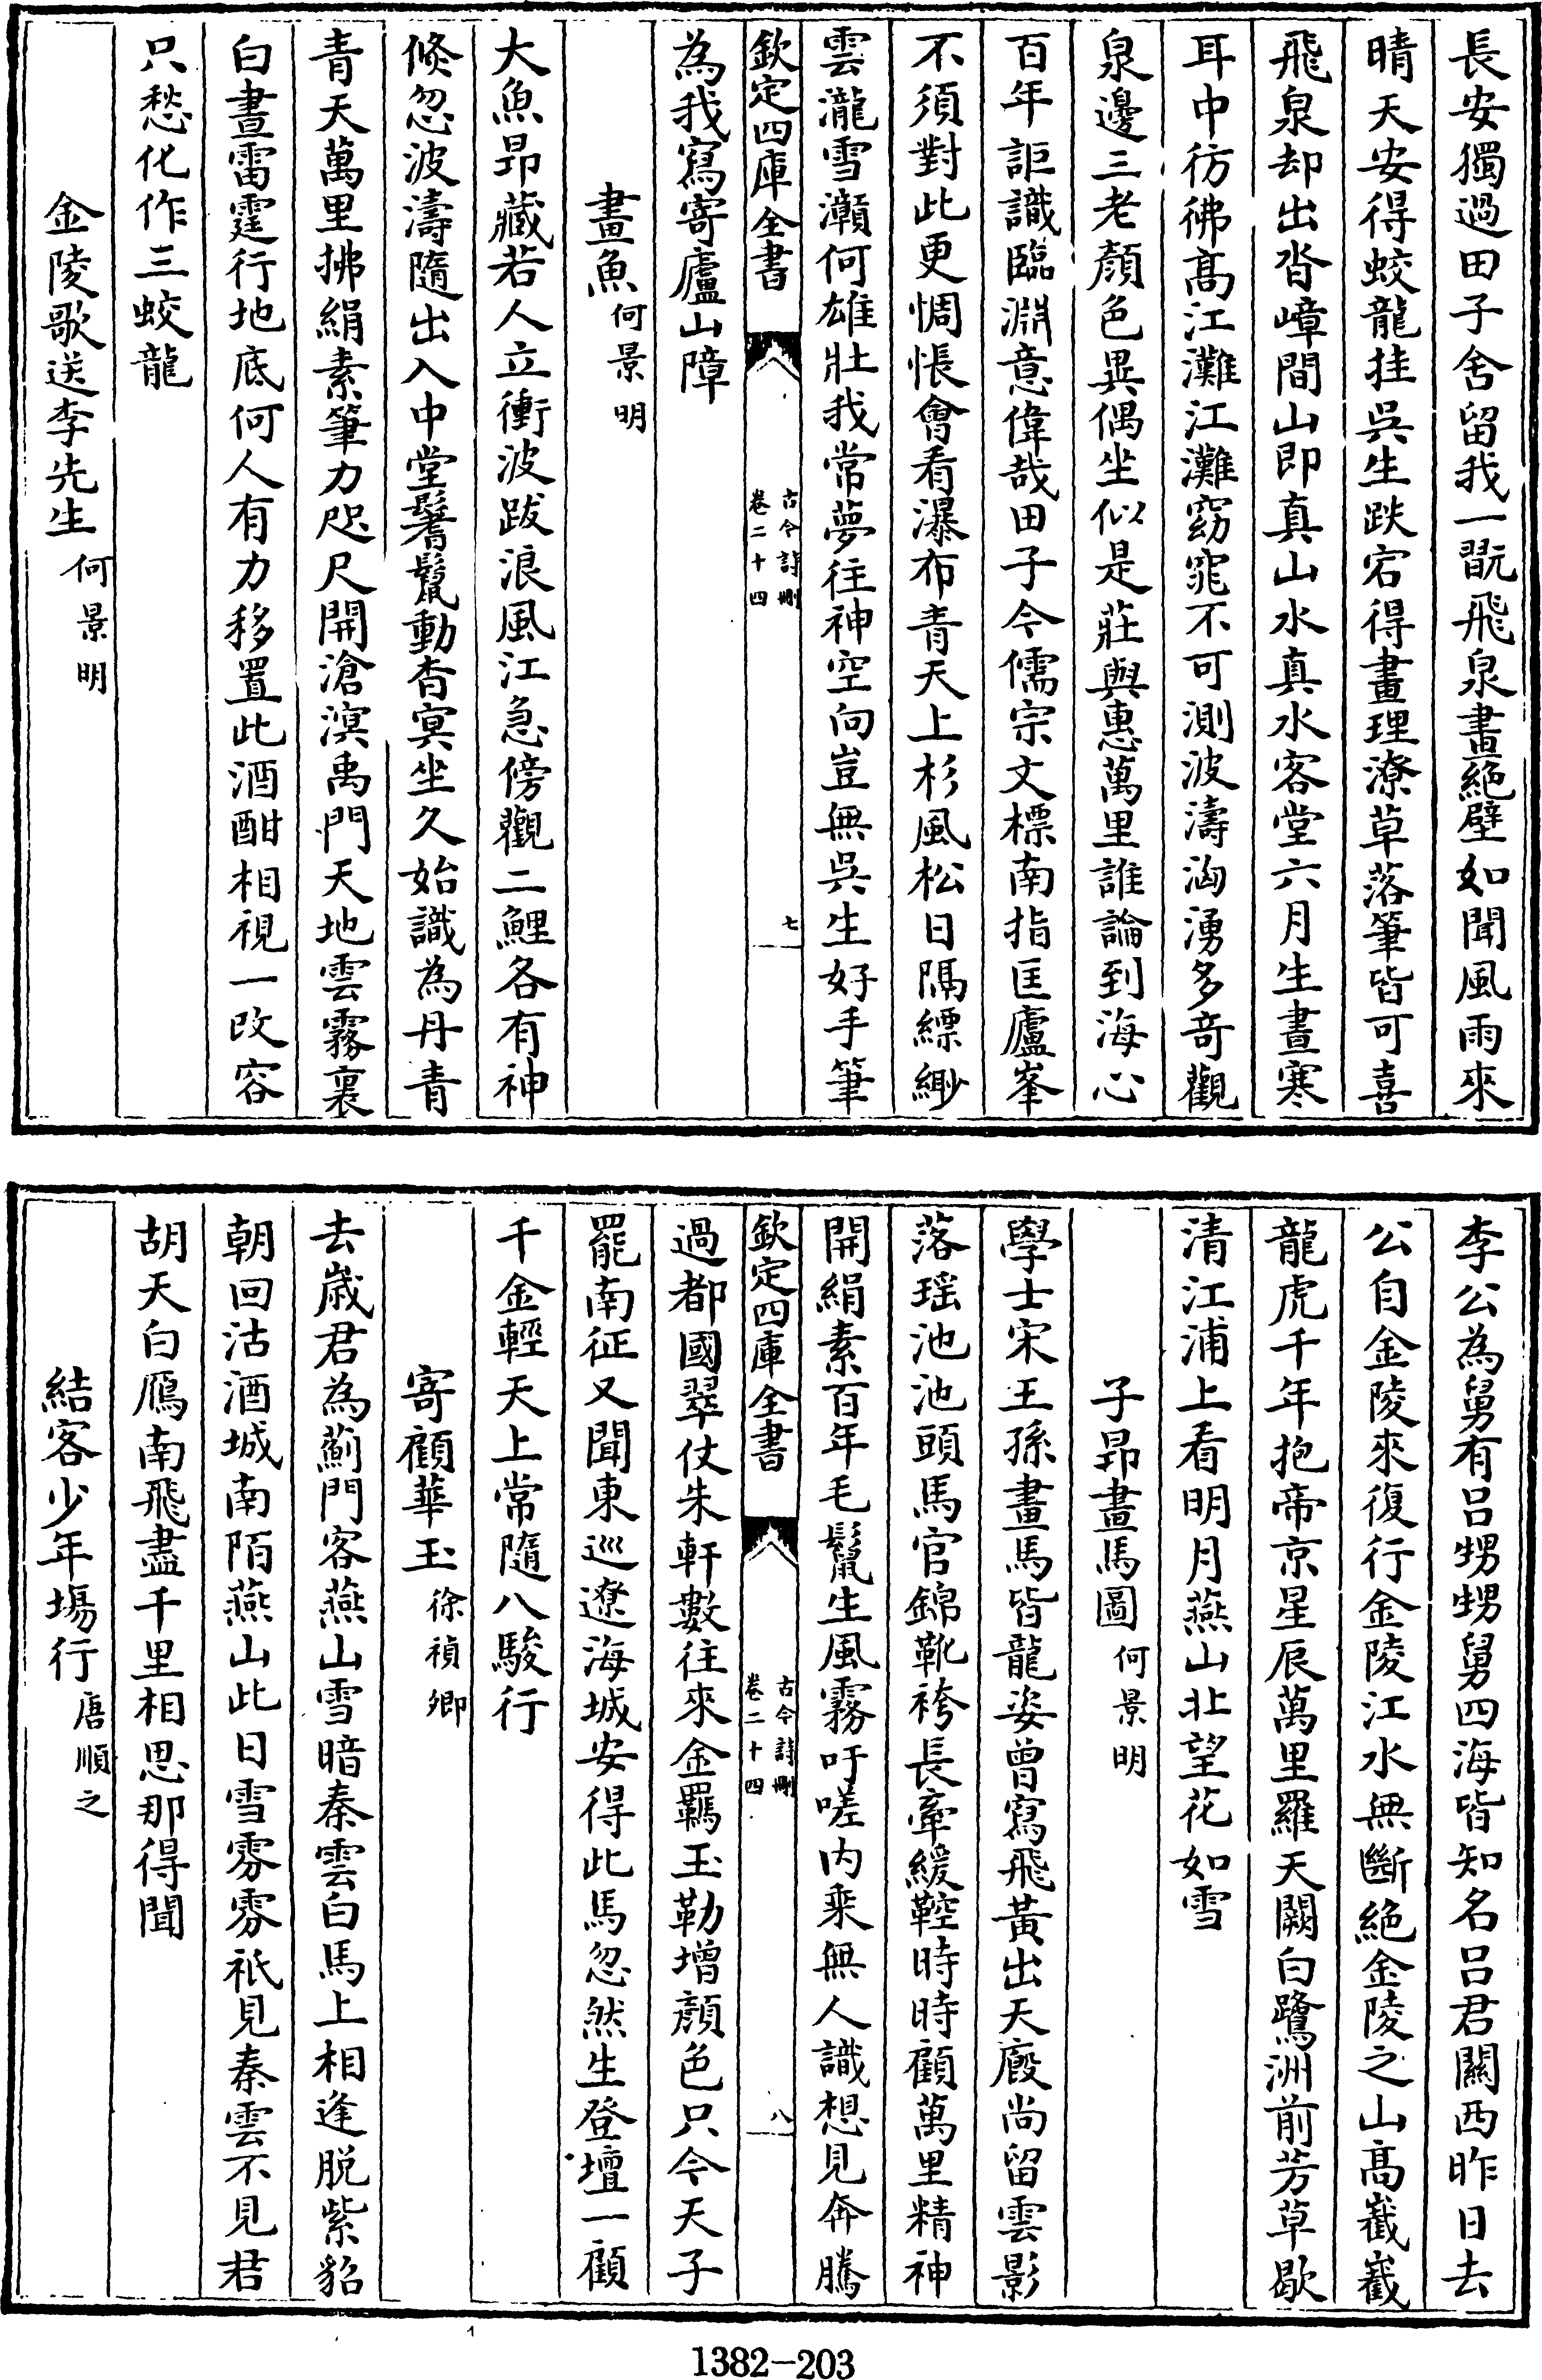 長安獨過田子舍留我一翫飛泉畫絶壁如聞風雨來
晴天安得蛟龍挂吳生跌宕得畫理潦草落筆皆可喜
飛泉却出沓嶂間山即真山水真水客堂六月生晝寒
耳中彷彿髙江灘江灘窈窕不可測波濤洶湧多奇觀
泉邊三老顔色異偶坐似是莊與惠萬里誰論到海心
百年詎識臨淵意偉哉田子今儒宗文標南指匡廬峯
不須對此更惆悵會看瀑布青天上杉風松日隔縹緲
雲瀧雪瀨何雄壯我常夢往神空向豈無吳生好手筆
欽定四庫全書
古今詩刪
卷二十四
七
為我寫寄廬山障
畫魚何景明
大魚昂藏若人立衝波跋浪風江急傍觀二鯉各有神
倐忽波濤隨出入中堂鬐鬛動杳冥坐久始識為丹青
青天萬里拂絹素筆力咫尺開滄溟禹門天地雲霧裏
白晝雷霆行地底何人有力移置此酒酣相視一改容
只愁化作三蛟龍
金陵歌送李先生何景明
李公為舅有呂甥甥舅四海皆知名呂君關西昨日去
公自金陵來復行金陵江水無斷絶金陵之山髙巀巀
龍虎千年抱帝京星辰萬里羅天闕白鷺洲前芳草歇
清江浦上看明月燕山北望花如雪
子昻畫馬圖何景明
學士宋王孫畫馬皆龍姿曾寫飛黃出天廐尚留雲影
落瑶池池頭馬官錦靴袴長牽緩鞚時時顧萬里精神
開絹素百年毛鬛生風霧吁嗟内乗無人識想見奔騰
欽定四庫全書
古今詩刪
卷二十四
八
過都國翠仗朱軒數往來金羈玉勒增顔色只今天子
罷南征又聞東巡遼海城安得此馬忽然生登壇一顧
千金輕天上常隨八駿行
寄顧華玉徐禎卿
去嵗君為薊門客燕山雪暗秦雲白馬上相逢脱紫貂
朝回沽酒城南陌燕山此日雪雰雰祇見秦雲不見君
胡天白鴈南飛盡千里相思那得聞
結客少年塲行唐順之
1382-203